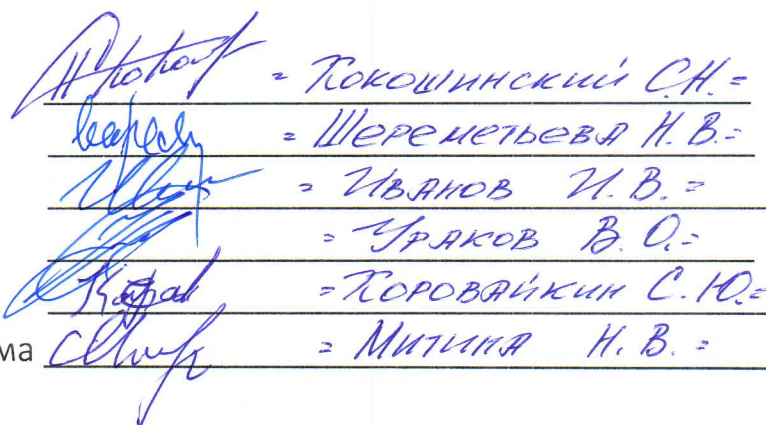 = Кокошинский С.Н. =
= Шереметьева Н.В. =
= Иванов И.В. =
= Ураков В.О. =
= Коровайкин С.Ю. =
ма = Митина Н.В. =